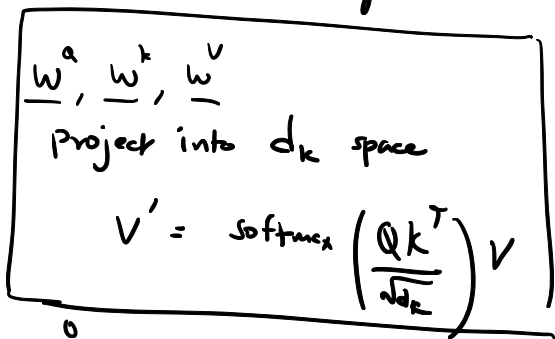 W^Q, W^k, W^V
project into d_k space
V' = softmax (Qk^T / √d_k) V